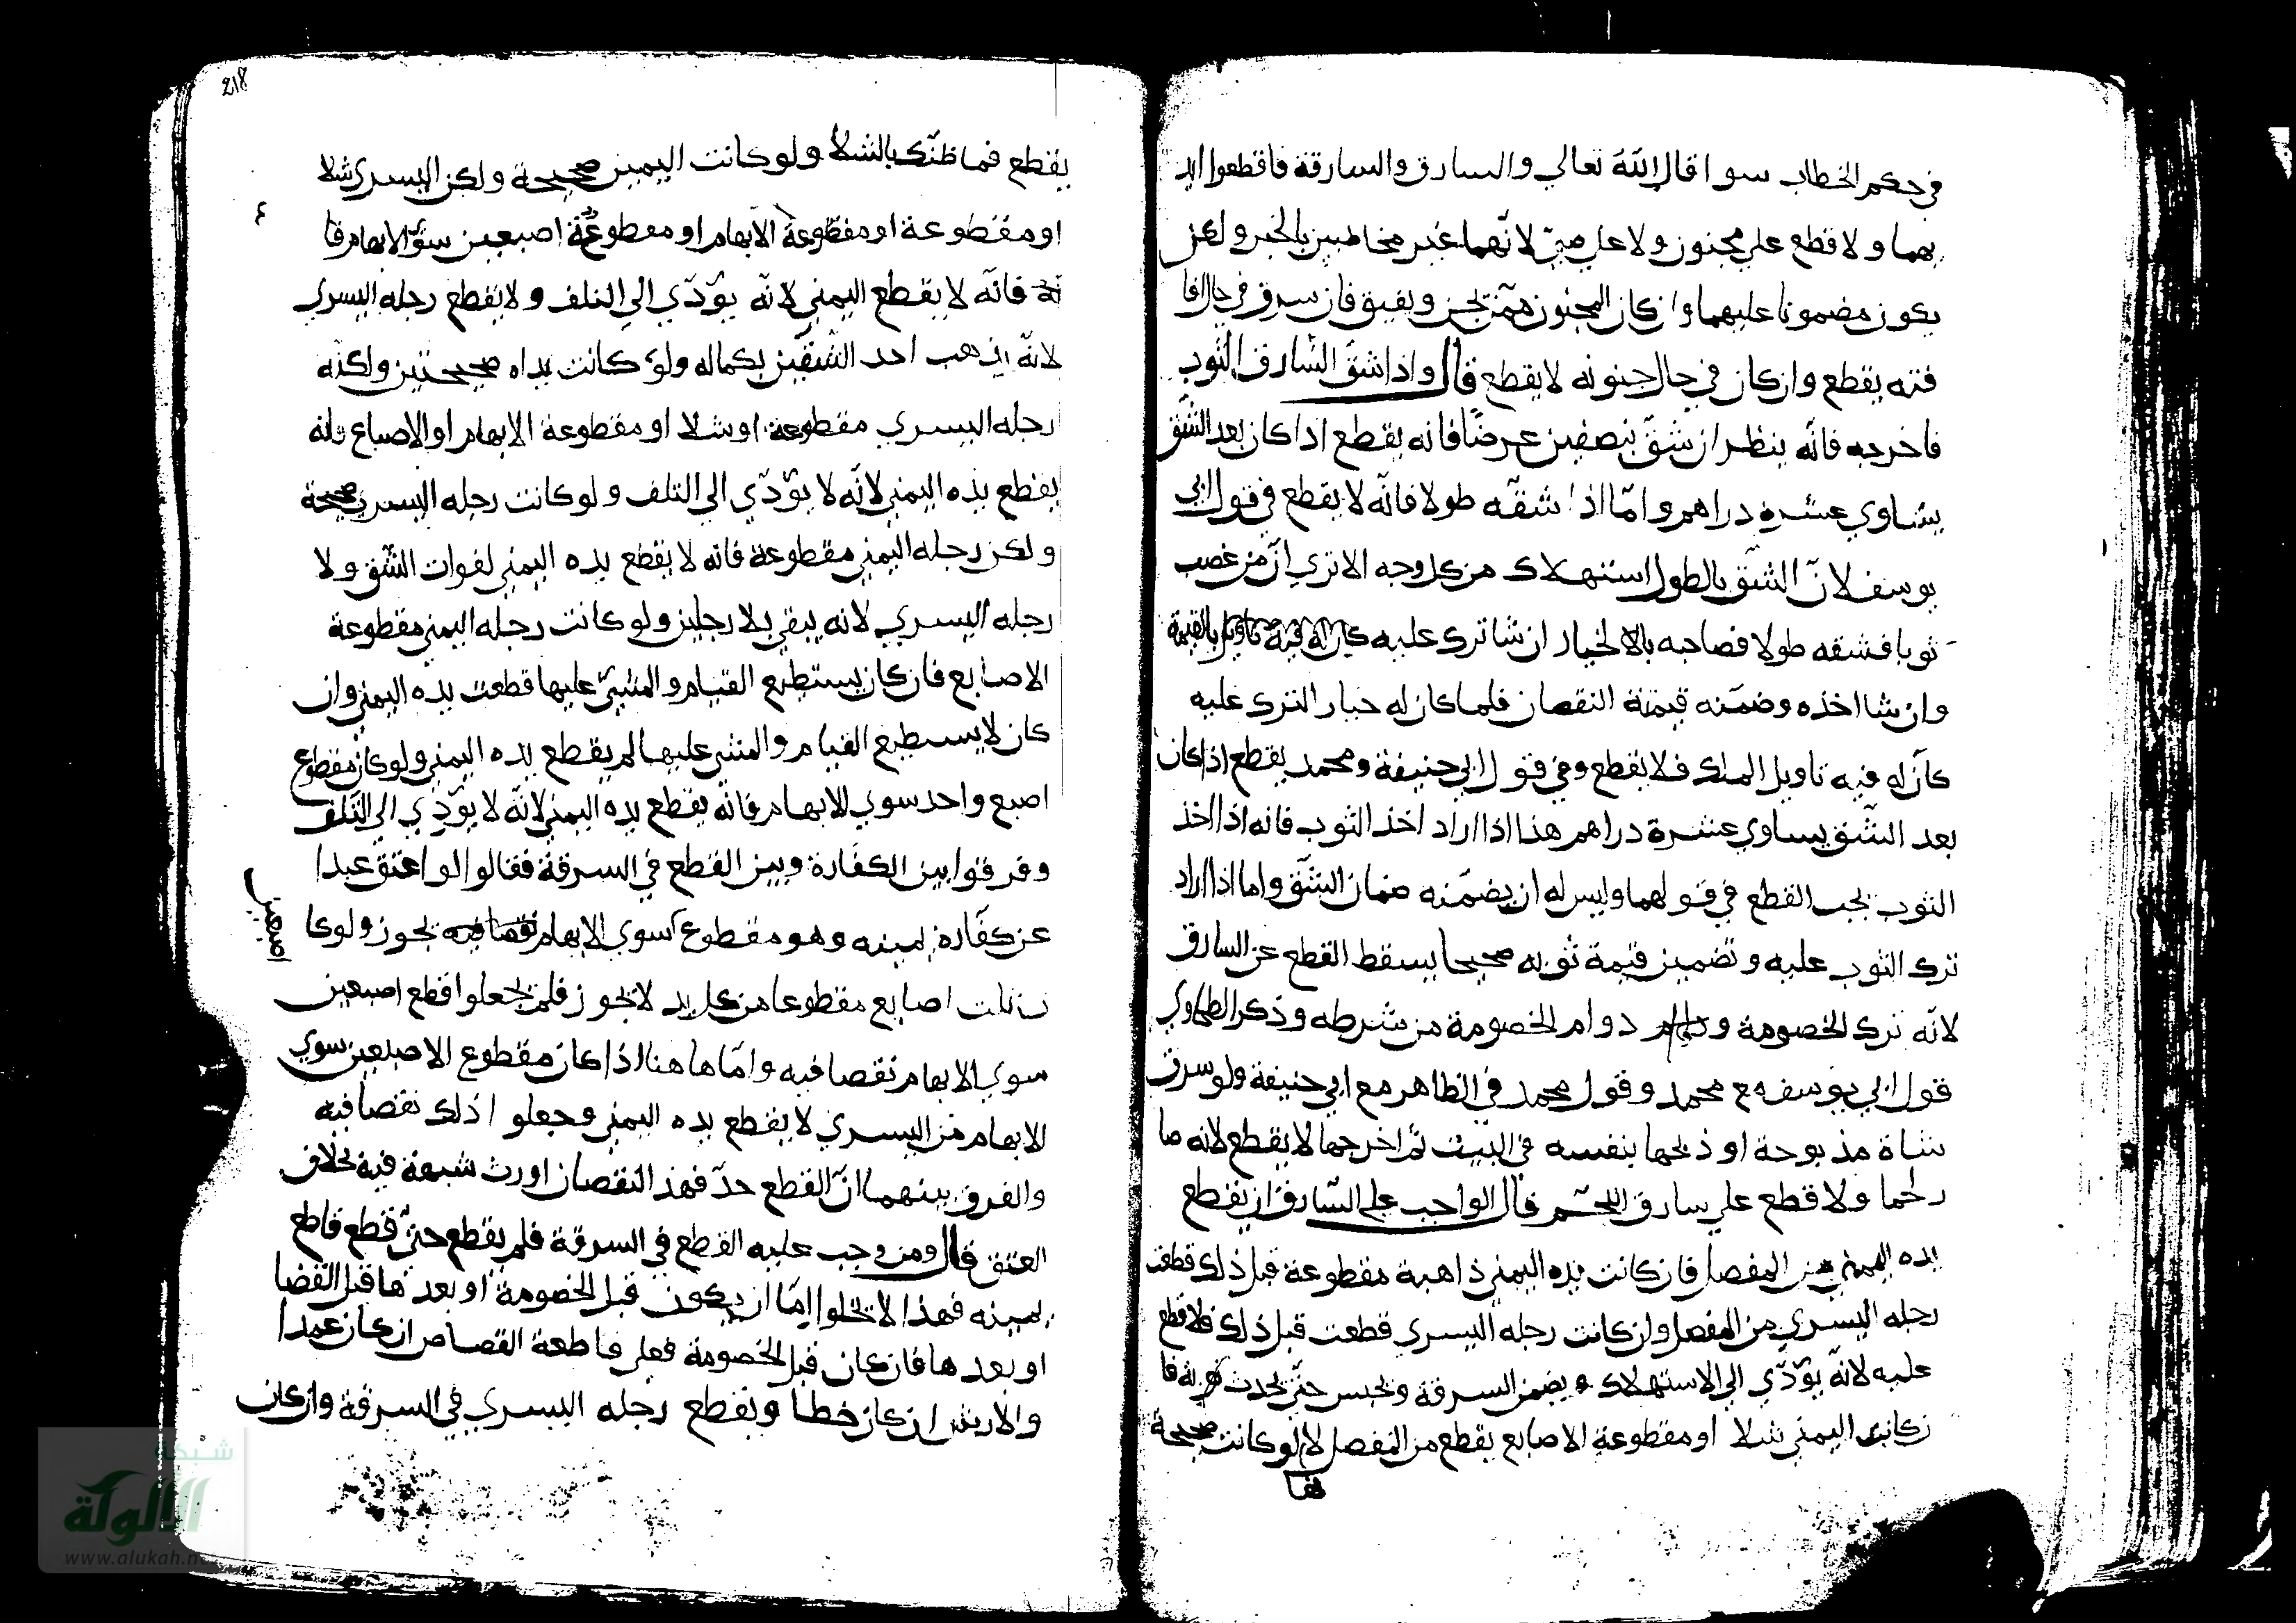 في حكم الخطاب سوا قال الله تعالي والسارق والسارقة فاقطعوا ايد
يهما ولا قطع علي مجنون ولا علي صبيّ لانّهما غير مخاطبين بالخبر ولكن
يكون مضمونا عليهما وان كان المجنون ممّن يجن ويفيق فان سرق في حال افا
قته يقطع وان كان في حال جنونه لا يقطع قال واذا شقّ السّارق الثوب
فاخرجه فانّه ينظر ان شقّ بنصفين عرضًا فانه يقطع اذا كان بعد الشّق
يساوي عشرة دراهم وامّا اذا شقّه طولا فانّه لا يقطع في قول ابي
يوسف لانّ الشقّ بالطول استهلاك من كل وجه الا تري انّ من غصب
ثوبا فشقه طولا فصاحبه بالاخيار ان شا ترك عليه بالقيمة
وان شا اخذه وضمّنه قيمتة النقصان فلما كان له خيار الترك عليه
كان له فيه تاويل الملك فلا يقطع وفي قول ابي حنيفة ومحمد يقطع اذا كان
بعد الشّق يساوي عشرة دراهم هذا اذا اراد اخذ الثوب فانه اذا اخذ
الثوب يجب القطع في قولهما وليس له ان يضمّنه ضمان الشّق واما اذا اراد
ترك الثوب عليه وتضمين قيمة ثوبه صحيحا يسقط القطع عن السارق
لانّه ترك الخصومة ودوام الخصومة من شرطه وذكر الطحاوي
قول ابي يوسف مع محمد وقول محمد في الظاهر مع ابي حنيفة ولو سرق
شاة مذبوحة او ذبحها بنفسه في البيت ثم اخرجها لا يقطع لانه صا
ر لحما ولا قطع علي سارق اللحم قال الواجب علي السّارق ان يقطع
يده اليمني من المفصل فان كانت يده اليمني ذاهبة مقطوعة قبل ذلك قطعت
رجله اليسري من المفصل وان كانت رجله اليسري قطعت قبل ذلك فلا قطع
عليه لانّه يؤدّي الي الاستهلاك ويضمن السرقة ويحبس حتّي يحدث توبة فا
ن كانت اليمني شلا او مقطوعة الاصابع يقطع من المفصل لانه لو كانت صحيحة
218
يقطع فما ظنّك بالشلا ولو كانت اليمين صحيحة ولكن اليسري شلا
او مقطوعة او مقطوعة الابهام او مقطوعة اصبعين سوي الابهام فا
نه فانّه لا يقطع اليمني لانّه يؤدّي الي التلف ولا يقطع رجله اليسري
لانّه يذهب احد الشّقّين بكماله ولو كانت يداه صحيحتين ولكنّه
رجله اليسري مقطوعة او شلا او مقطوعة الابهام او الاصباع فانه
يقطع يده اليمني لانّه لا يؤدّي الي التلف ولو كانت رجله اليسري صحيحة
ولكن رجله اليمني مقطوعة فانه لا يقطع يده اليمني لفوات الشّق ولا
رجله اليسري لانه يبقي بلا رجلين ولو كانت رجله اليمني مقطوعة
الاصابع فان كان يستطيع القيام والمشيّ عليها قطعت يده اليمني وان
كان لا يستطيع القيام والمشي عليها لم يقطع يده اليمني ولو كان مقطوع
اصبع واحد سوي الابهام فانّه يقطع يده اليمني لانّه لا يؤدّي الي التلف
وفرقوا بين الكفارة وبين القطع في السرقة فقالوا لو اعتق عبدا
عن كفّارة يمينه وهو مقطوع سوي الابهام يجوز ولو كا
اصبعين
ن ثلث اصابع مقطوعا من كل يد لا يجوز فلم يجعلوا قطع اصبعين
سوي الابهام نقصا فيه وامّا ها هنا اذا كان مقطوع الاصبعين سوي
الابهام من اليسري لا يقطع يده اليمني وجعلوا ذلك نقصا فيه
والفرق بينهما انّ القطع حدّ فهذ النقصان اورث شبهة فيه بخلاف
العتق قال ومن وجب عليه القطع في السرقة فلم يقطع حتيّ قطع قاطع
يمينه فهذا لا يخلوا امّا ان يكون قبل الخصومة او بعدها قبل القضا
او بعدها فان كان قبل الخصومة فعلي قاطعة القصاص ان كان عمدا
والارش ان كان خطا ويقطع رجله اليسري في السرقة وان كان
شبكة
الألوكة
www.alukah.net